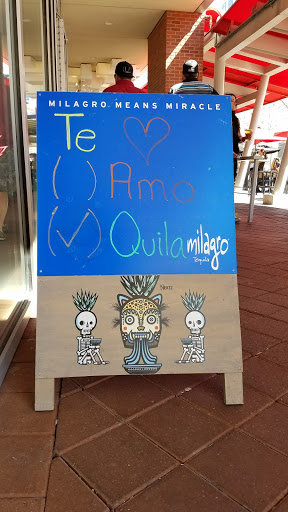 MILAGRO MEANS MIRACLE
Te
( ) Amo
(✓) Quila milagro
Tequila